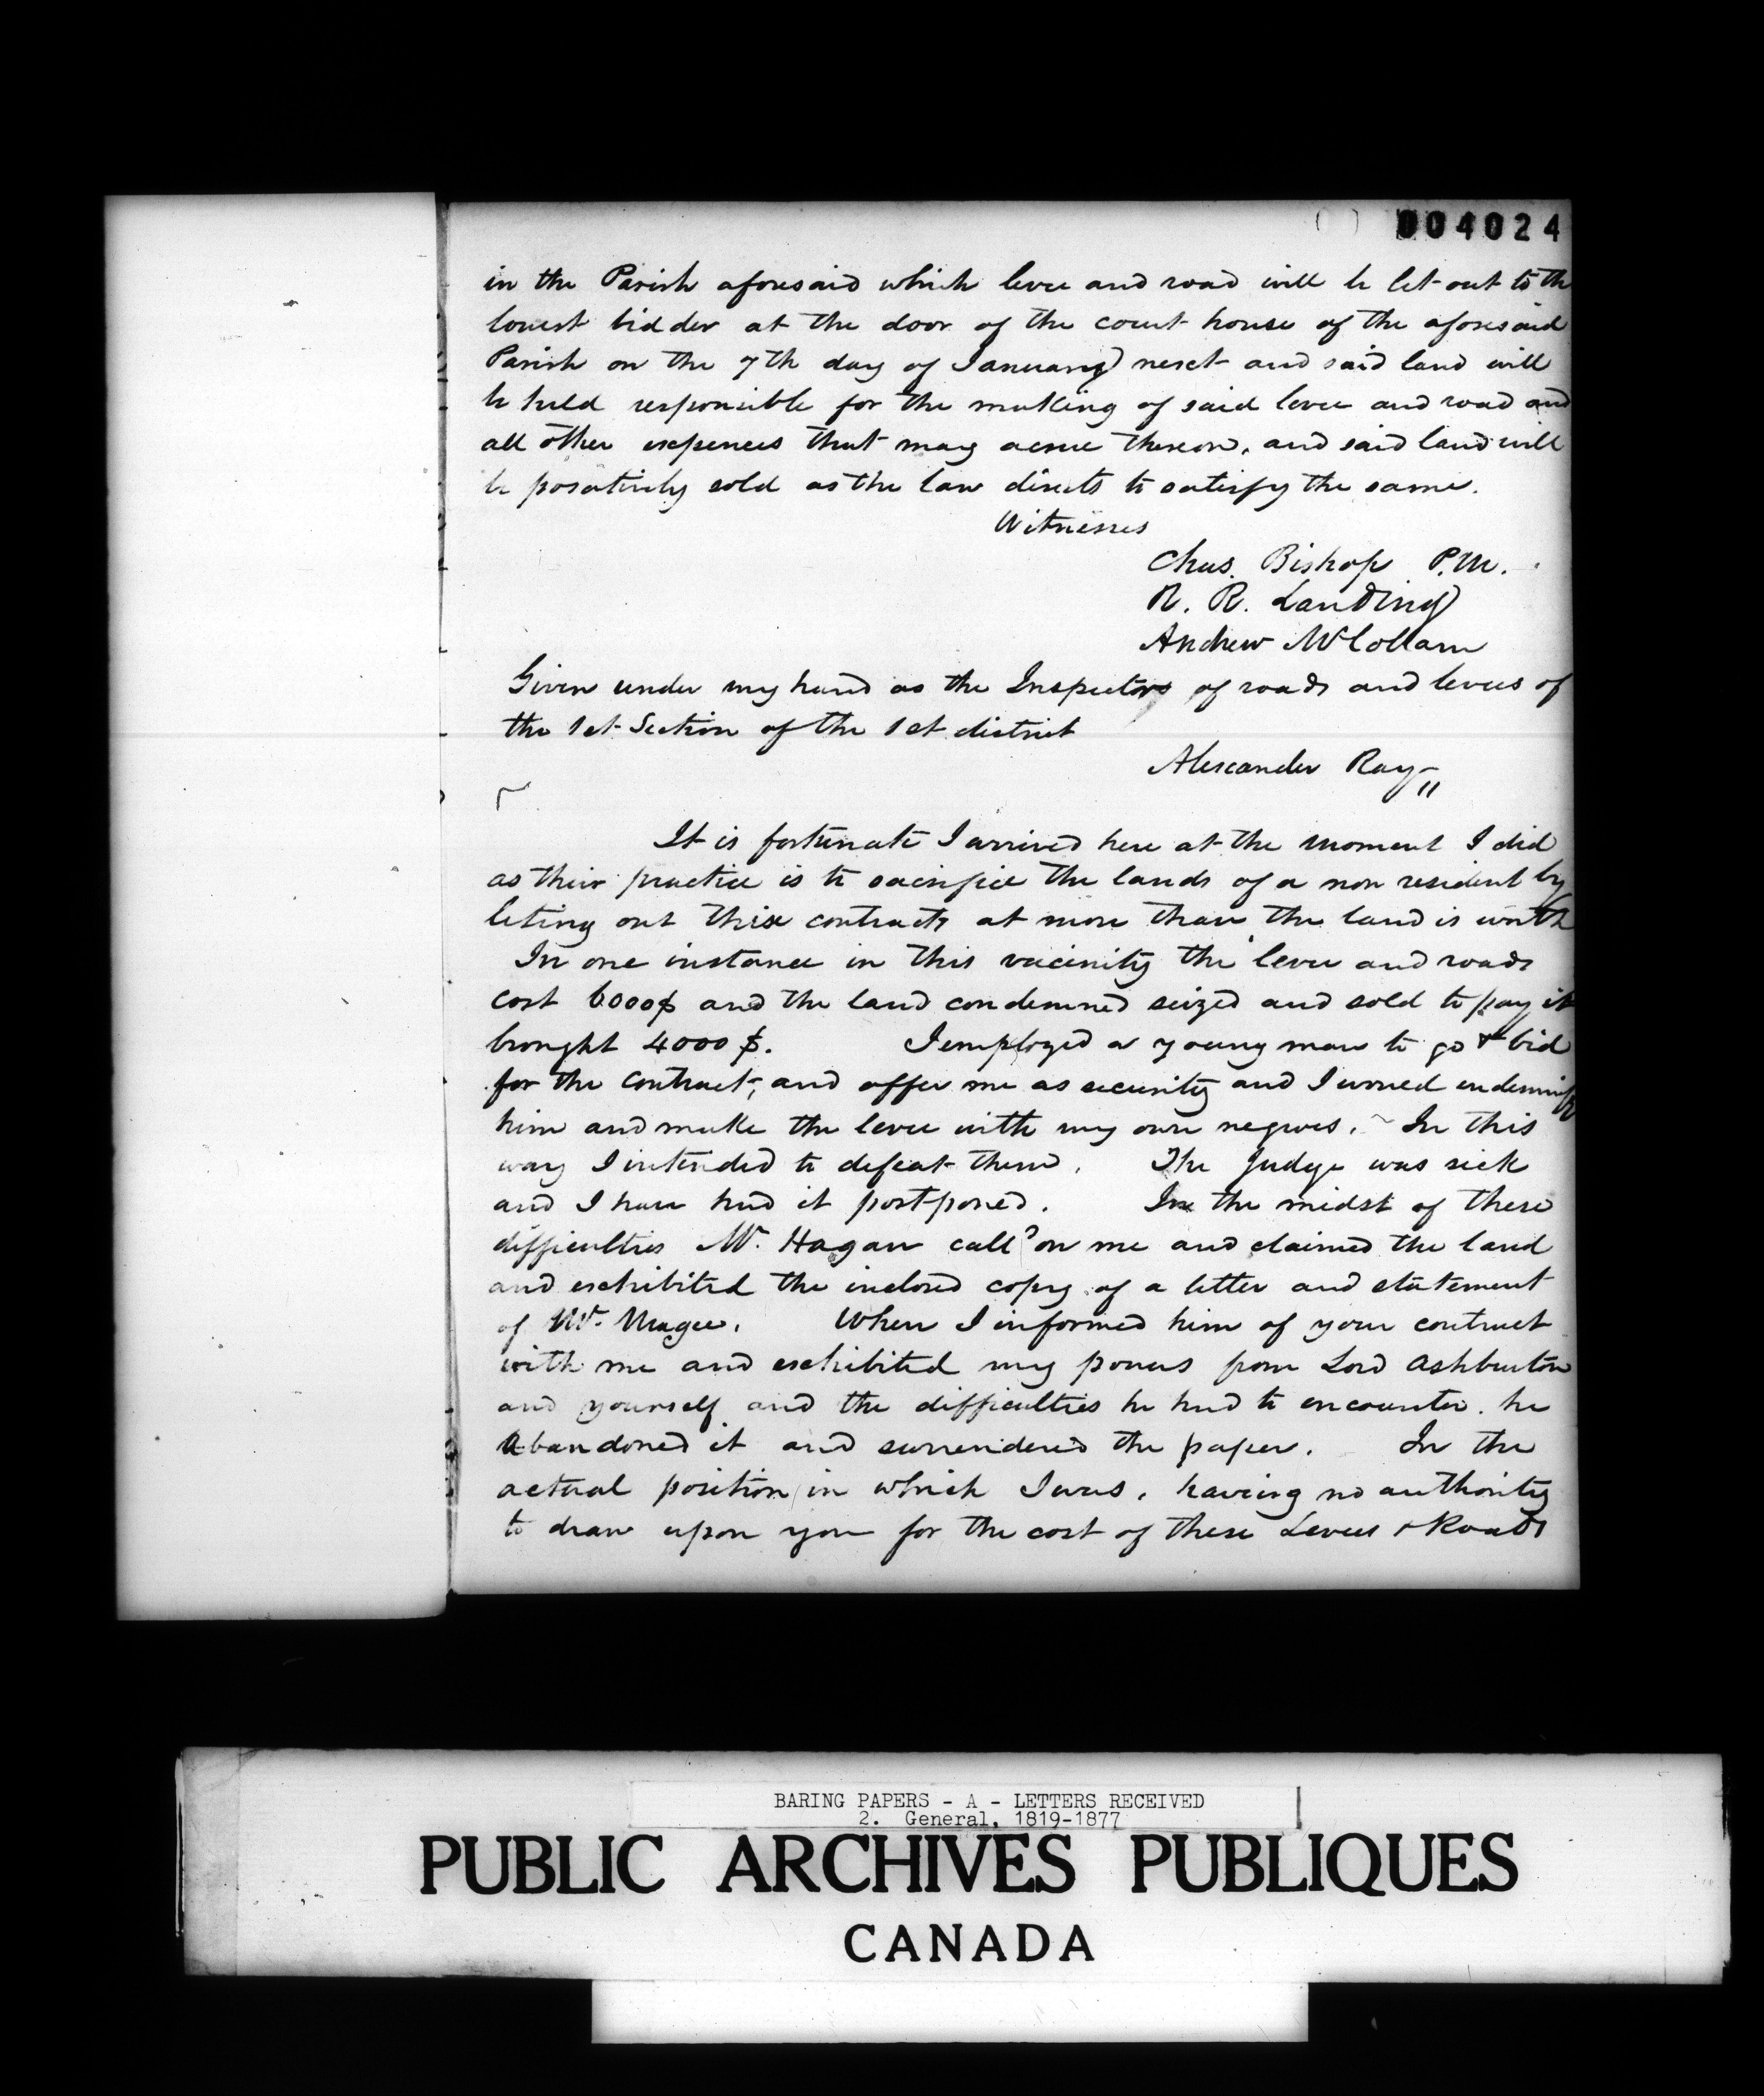 004024
in the Parish aforesaid which levee and road will be let out to the
lowest bidder at the door of the court house of the aforesaid
Parish on the 7th day of January next and said land will
be held responsible for the making of said levee and road and
all other expences that may acrue thereon, and said land will
be posatively sold as the law directs to satisfy the same.
Witnesses
Chas. Bishop P.M.
R. R. Landing
Andrew McCollam
Given under my hand as the Inspectors of roads and levees of
the 1st Section of the 1st district
Alexander Ray
It is fortunate I arrived here at the moment I did
as their practice is to sacrifice the lands of a non resident by
leting out their contracts at more than the land is worth
In one instance in this vacinity the levee and roads
cost 6000$ and the land condemned seized and sold to pay it
brought 4000$. I employed a young man to go & bid
for the contract, and offer me as security and I woued indemnify
him and make the levee with my own negroes. In this
way I intended to defeat them. The Judge was sick
and I have had it postponed. In the midst of these
difficulties Mr. Hagan calld on me and claimed the land
and exhibited the inclosed copy of a letter and statement
of Mr. Magee. When I informed him of your contract
with me and exhibited my powers from Lord Ashburton
and yourself and the difficulties he had to encounter. he
abandoned it and surrendered the paper. In the
actual position in which I was, having no authority
to draw upon you for the cost of these Levees & Roads
BARING PAPERS - A - LETTERS RECEIVED
2. General, 1819-1877
PUBLIC ARCHIVES PUBLIQUES
CANADA